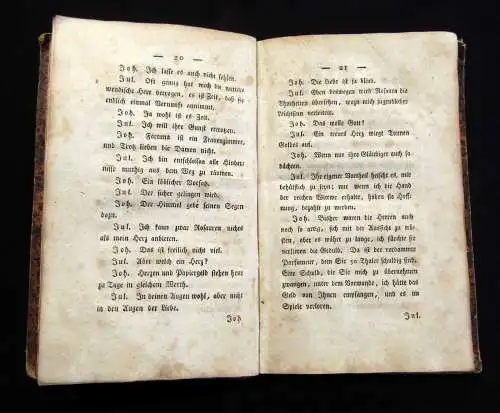 — 20 —
Joh. Ich lasse es auch nicht fehlen.
Jul. Oft genug hat mich die
wendische Here betrogen, es ist Zeit, daß sie
endlich einmal Vernunft annimmt.
Joh. Ja wohl ist es Zeit.
Jul. Ich will ihr Gunst ertrotzen.
Joh. Fortuna ist ein Frauenzimmer,
und Trotz lieben die Damen nicht.
Jul. Ich bin entschlossen alle Hinder-
nisse muthig aus dem Weg zu räumen.
Joh. Ein löblicher Vorsatz.
Jul. Der sicher gelingen wird.
Joh. Der Himmel gebe seinen Segen
dazu.
Jul. Ich kann zwar Rosauren nichts
als mein Herz anbieten.
Joh. Das ist freilich nicht viel.
Jul. Aber welch ein Herz?
Joh. Herzen und Papiergeld stehen heut
zu Tage in gleichem Werth.
Jul. In deinen Augen wohl, aber nicht
in den Augen der Liebe.
Joh
— 21 —
Joh. Die Liebe ist ja blind.
Jul. Eben deswegen wird Rosaura die
Thorheiten übersehen, wozu mich jugendlicher
Leichtsinn verleitete.
Joh. Das wolle Gott!
Jul. Ein treues Herz wiegt Tonnen
Goldes auf.
Joh. Wenn nur ihre Gläubiger auch so
dächten.
Jul. Ihr eigner Vortheil heischt es, mir
behülflich zu seyn; nur wenn ich die Hand
der reichen Wittwe erhalte, haben sie Hoff-
nung, bezahlt zu werden.
Joh. Bisher waren die Herren auch
noch so artig, sich mit der Aussicht zu trö-
sten, aber es währt zu lange, ich fürchte sie
verlieren die Geduld. Da ist der verdammte
Parfumeur, dem Sie 50 Thaler schuldig sind.
Eine Schuld, die Sie mich zu übernehmen
zwangen, unter dem Vorwande, ich hätte das
Geld von Ihnen empfangen, und es im
Spiele verloren.
Jul.